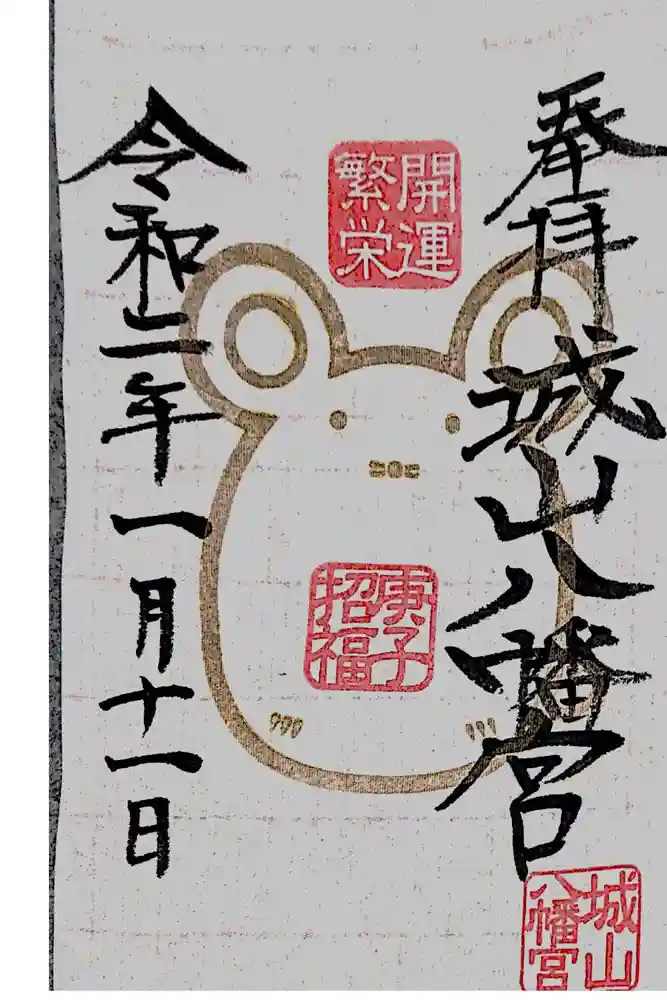 奉拝
城山八幡宮
開運
繁栄
庚子
招福
城山
八幡宮
令和二年一月十一日